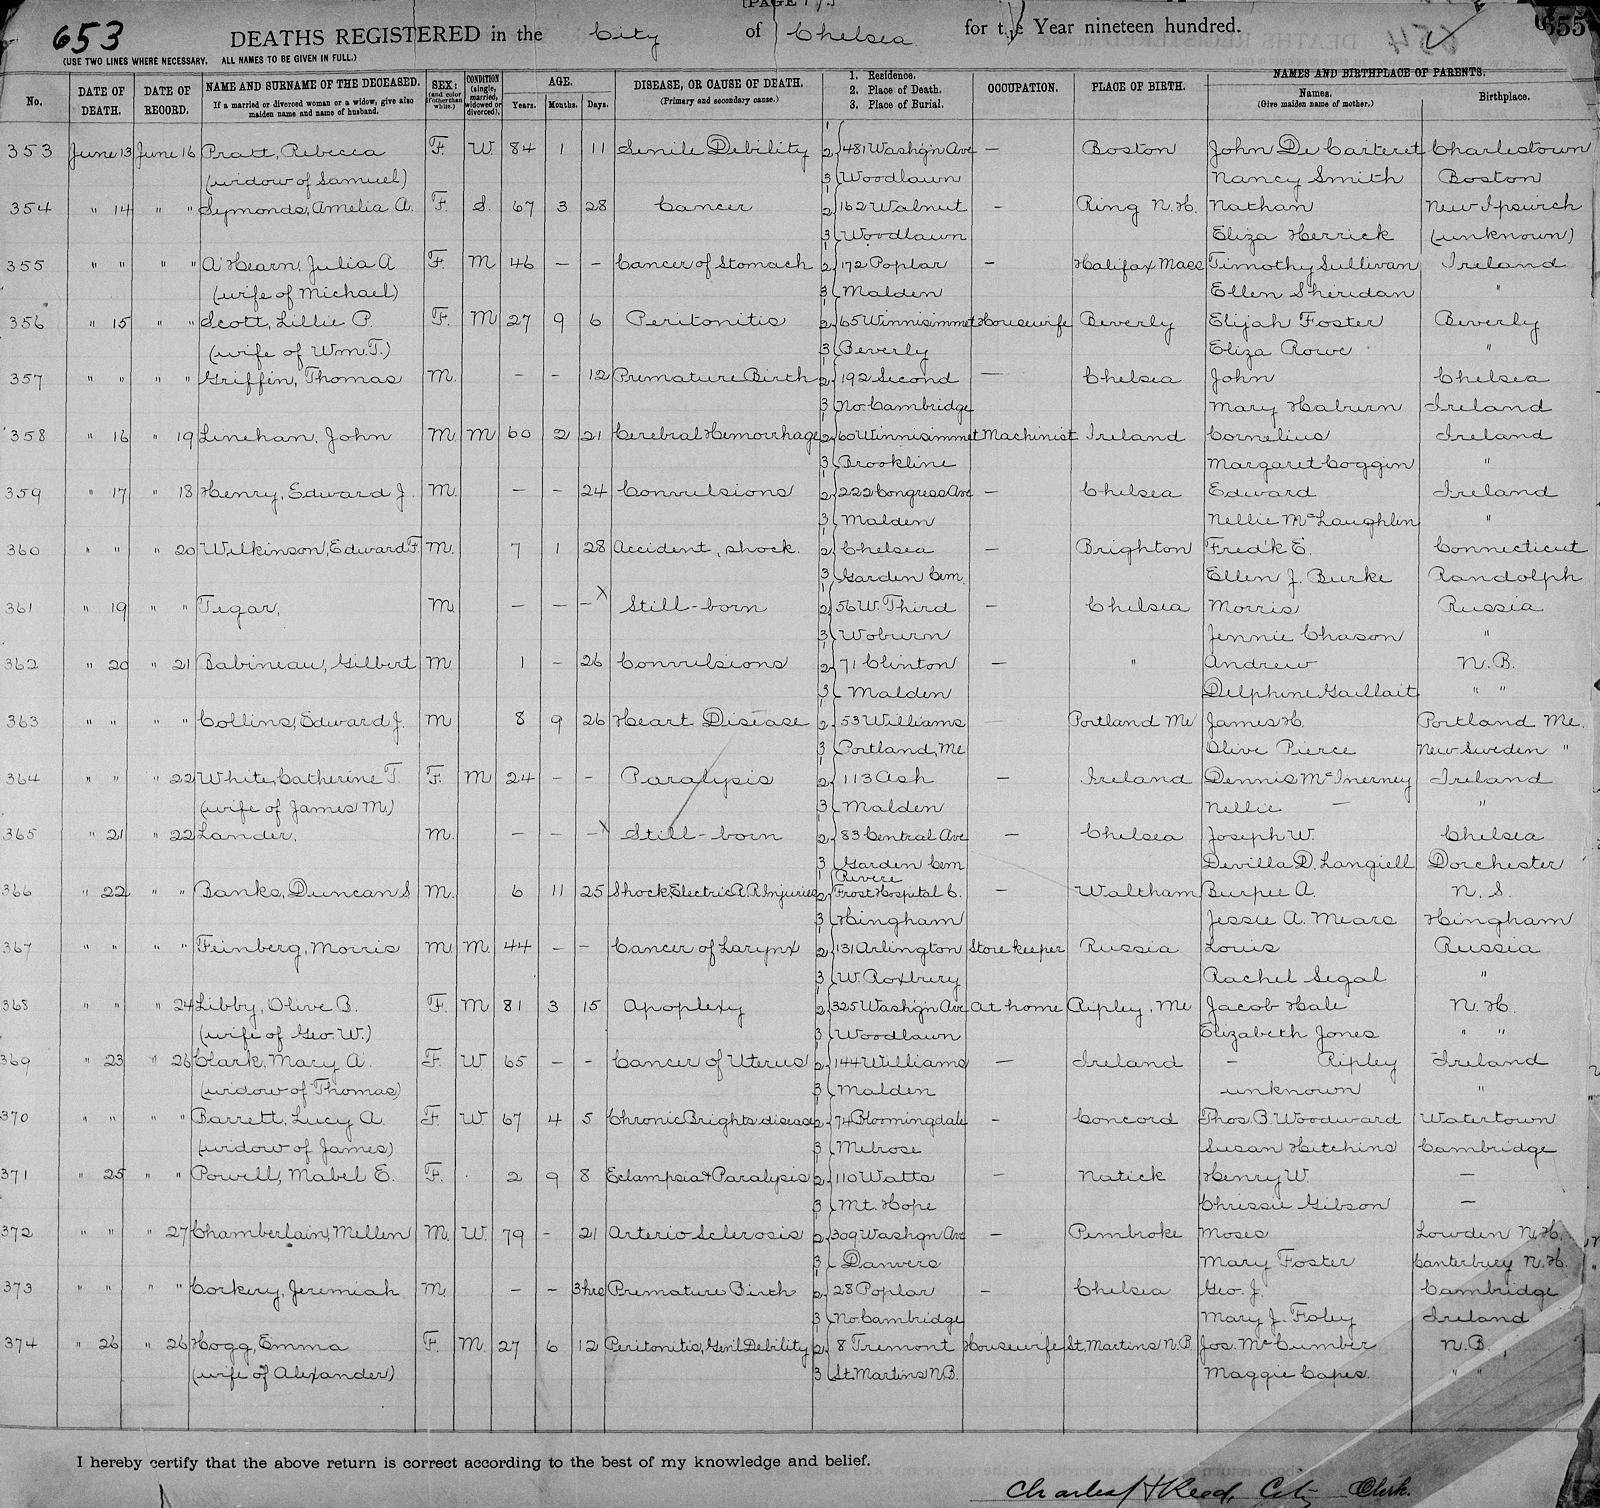 [PAGE
653 DEATHS REGISTERED in the City of Chelsea for the Year nineteen hundred. 655
(USE TWO LINES WHERE NECESSARY. ALL NAMES TO BE GIVEN IN FULL.)
No. DATE OF DEATH. DATE OF RECORD. NAME AND SURNAME OF THE DECEASED. If a married or divorced woman or a widow, give also maiden name and name of husband. SEX: (and color if other than white.) CONDITION (single, married, widowed or divorced). AGE. Years. Months. Days. DISEASE, OR CAUSE OF DEATH. (Primary and secondary cause.) 1. Residence. 2. Place of Death. 3. Place of Burial. OCCUPATION. PLACE OF BIRTH. NAMES AND BIRTHPLACE OF PARENTS. Names. (Give maiden name of mother.) Birthplace.
353 June 13 June 16 Pratt, Rebecca F. W. 84 1 11 Senile Debility 1 2 481 Washg'n Ave — Boston John De Carteret Charlestown
(widow of Samuel) 3 Woodlawn Nancy Smith Boston
354 " 14 " " Symonds, Amelia A. F. S. 67 3 28 Cancer 1 2 162 Walnut — Ring N.H. Nathan New Ipswich
3 Woodlawn Eliza Herrick (unknown)
355 " " " " A'Hearn, Julia A F. M 46 — — Cancer of Stomach 1 2 172 Poplar — Halifax Mass Timothy Sullivan Ireland
(wife of Michael) 3 Malden Ellen Sheridan "
356 " 15 " " Scott, Lillie P. F. M 27 9 6 Peritonitis 1 2 65 Winnisimmet Housewife Beverly Elijah Foster Beverly
(wife of Wm. T.) 3 Beverly Eliza Rowe "
357 " " " " Griffin, Thomas M. — — 12 Premature Birth 1 2 192 Second — Chelsea John Chelsea
3 No. Cambridge Mary Haburn Ireland
358 " 16 " 19 Linehan, John M M 60 2 21 Cerebral Hemorrhage 1 2 60 Winnisimmet Machinist Ireland Cornelius Ireland
3 Brookline Margaret Coggin "
359 " 17 " 18 Henry, Edward J. M. — — 24 Convulsions 1 2 222 Congress Ave — Chelsea Edward Ireland
3 Malden Nellie McLaughlin "
360 " " " 20 Wilkinson, Edward F. M. 7 1 28 Accident, shock. 1 2 Chelsea — Brighton Fred'k E. Connecticut
3 Garden Cem. Ellen J. Burke Randolph
361 " 19 " " Tegar, M — — — x Still-born 1 2 56 W. Third — Chelsea Morris Russia
3 Woburn Jennie Chason "
362 " 20 " 21 Babineau, Gilbert M 1 — 26 Convulsions 1 2 71 Clinton — " Andrew N.B.
3 Malden Delphine Gaillait " "
363 " " " " Collins, Edward J. M 8 9 26 Heart Disease 1 2 53 Williams — Portland Me James H. Portland Me.
3 Portland, Me Olive Pierce New Sweden "
364 " " " 22 White, Catherine T. F. M 24 — — Paralysis 1 2 113 Ash — Ireland Dennis McInerney Ireland
(wife of James M.) 3 Malden Nellie — "
365 " 21 " 22 Lander, M. — — — x Still-born 1 2 83 Central Ave — Chelsea Joseph W. Chelsea
3 Garden Cem Devilla D. Langiell Dorchester
366 " 22 " " Banks, Duncan S M. 6 11 25 Shock, Electric R.R. Injuries 1 Revere 2 Frost Hospital C. — Waltham Burpee A. N.S.
3 Hingham Jessie A. Mears Hingham
367 " " " " Feinberg, Morris M. M. 44 — — Cancer of Larynx 2 131 Arlington Store keeper Russia Louis Russia
3 W. Roxbury Rachel Segal "
368 " " " 24 Libby, Olive B. F. M 81 3 15 Apoplexy 1 2 325 Washg'n Ave At home Ripley, Me Jacob Hale N.H.
(wife of Geo. W.) 3 Woodlawn Elizabeth Jones " "
369 " 23 " 26 Clark, Mary A. F. W 65 — — Cancer of Uterus 2 144 Williams — Ireland — Ripley Ireland
(widow of Thomas) 3 Malden unknown "
370 " " " " Barrett, Lucy A. F. W. 67 4 5 Chronic Brights disease 2 74 Bloomingdale — Concord Thos. B. Woodward Watertown
(widow of James) 3 Melrose Susan Hutchins Cambridge
371 " 25 " " Powell, Mabel E. F. 2 9 8 Eclampsia & Paralysis 2 110 Watts — Natick Henry W. —
3 Mt. Hope Chrissie Gibson —
372 " " " 27 Chamberlain, Mellen M. W. 79 — 21 Arterio Sclerosis 2 309 Washgn Ave — Pembroke Moses Lowden N.H.
3 Danvers Mary Foster Canterbury N.H.
373 " " " " Corkery, Jeremiah M. — — 3 hrs Premature Birth 2 28 Poplar — Chelsea Geo. J. Cambridge
3 No. Cambridge Mary J. Foley Ireland
374 " 26 " 26 Hogg, Emma F. M. 27 6 12 Peritonitis, Gen'l Debility 2 8 Tremont Housewife St. Martins N.B. Jos. McCumber N.B.
(wife of Alexander) 3 St. Martins N.B. Maggie Capes. " "
I hereby certify that the above return is correct according to the best of my knowledge and belief.
Charles H Reed, City Clerk.